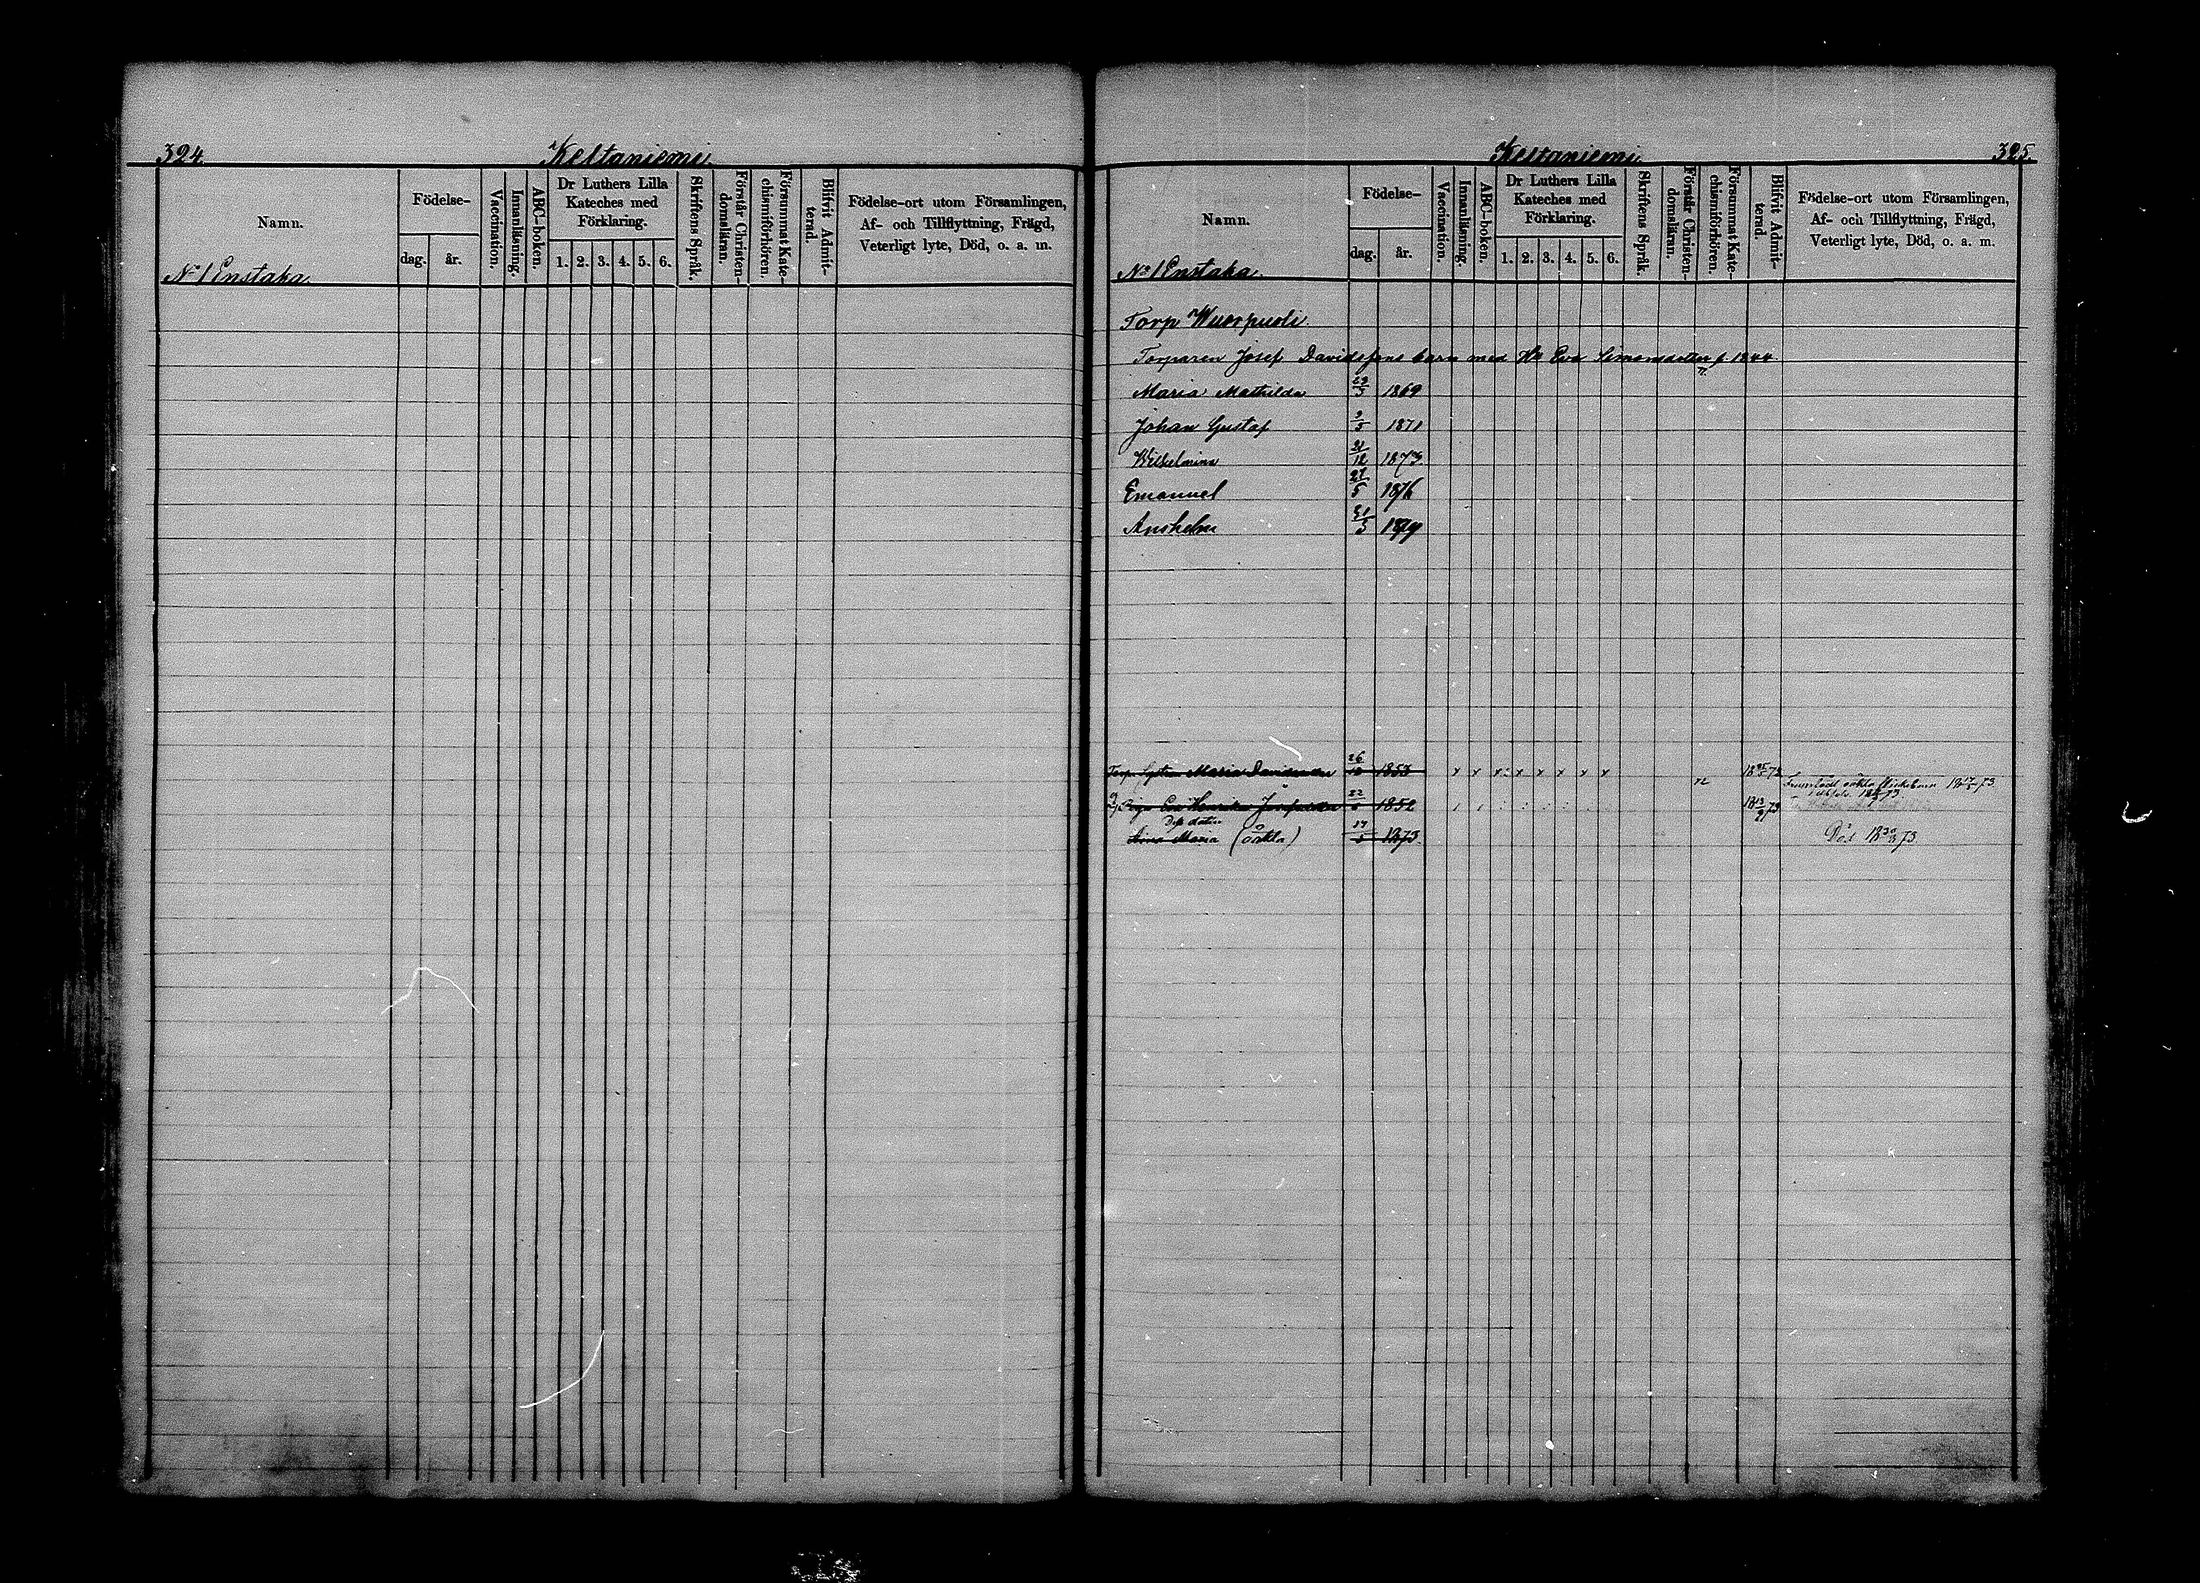 324.
Keltaniemi
Namn.
Födelse-
dag.
år.
Vaccination.
Innanläsning.
ABC-boken.
Dr Luthers Lilla
Kateches med
Förklaring.
1. 2. 3. 4. 5. 6.
Skriftens Språk.
Förstår Christen-
domsläran.
Försummat Kate-
chismiförhören.
Blifvit Admit-
terad.
Födelse-ort utom Församlingen,
Af- och Tillflyttning, Frägd,
Veterligt lyte, Död, o. a. m.
No 1 Enstaka.
Keltaniemi
325.
Namn.
Födelse-
dag.
år.
Vaccination.
Innanläsning.
ABC-boken.
Dr Luthers Lilla
Kateches med
Förklaring.
1. 2. 3. 4. 5. 6.
Skriftens Språk.
Förstår Christen-
domsläran.
Försummat Kate-
chismiförhören.
Blifvit Admit-
terad.
Födelse-ort utom Församlingen,
Af- och Tillflyttning, Frägd,
Veterligt lyte, Död, o. a. m.
No 1 Enstaka.
Torp
Torparen Josef Davidssons barn med Eva Simonsdotter f. 1844
Maria Mathilda 1869
Johan Gustaf 3/5 1871
Wilhelmina 1873
Emanuel 27/5 1876
Anshelm 31/5 1879
Maria 26/12 1853 x x x x x x x x
Eva Henrika 1852
Dess dotter
Maria (oäkta) 1873 Död 18 30/8 73